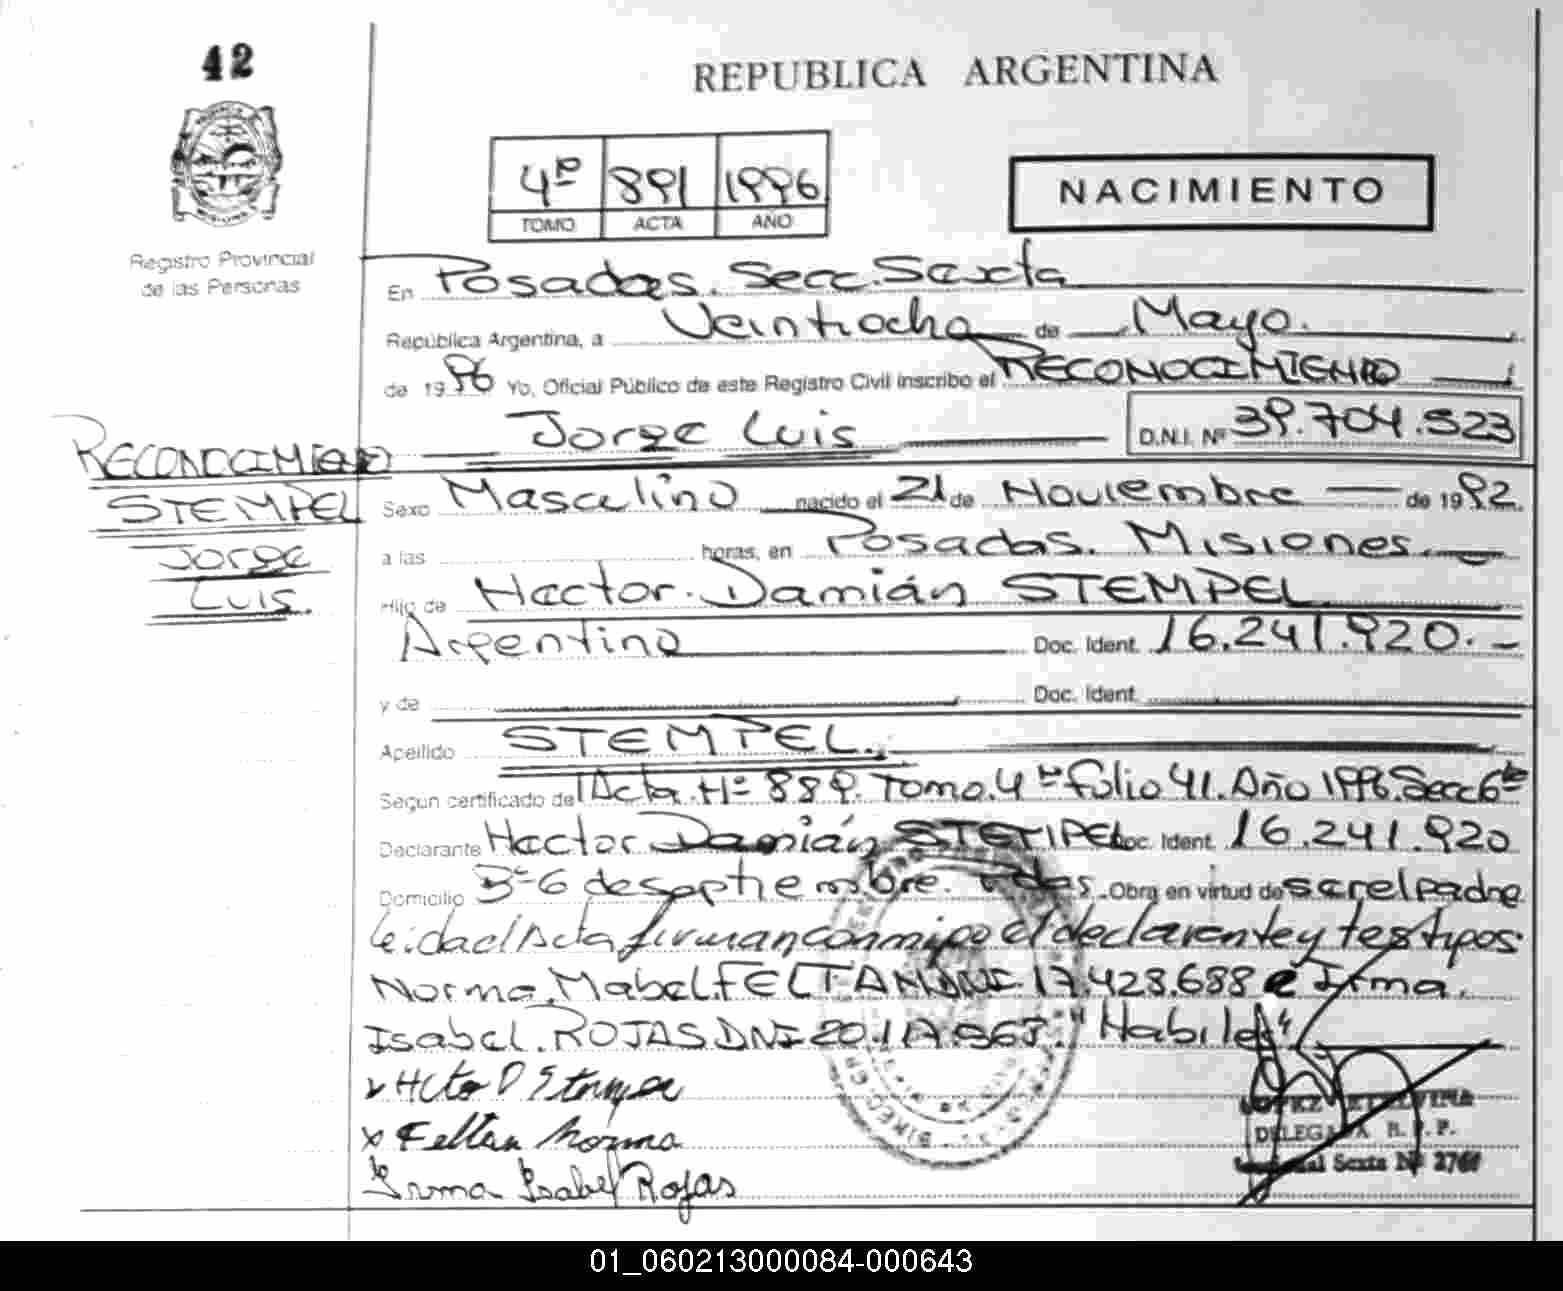 42
REPUBLICA ARGENTINA
4º 891 1996
TOMO ACTA AÑO
NACIMIENTO
Registro Provincial
de las Personas
En Posadas. Secc. Sexta
República Argentina, a Veintiocho de Mayo.
de 1996 Yo, Oficial Público de este Registro Civil inscribo el RECONOCIMIENTO
Jorge Luis D.N.I. Nº 39.704.523
RECONOCIMIENTO
STEMPEL
Jorge
Luis.
Sexo Masculino nacido el 21 de Noviembre de 1992.
a las horas, en Posadas. Misiones.
Hijo de Hector. Damián STEMPEL
Argentino Doc. Ident. 16.241.920.-
y de Doc. Ident.
Apellido STEMPEL.
Según certificado de Acta. Nº 889. Tomo. 4º folio 41. Año 1996. Secc 6ta
Declarante Hector Damián STEMPEL Doc. Ident. 16.241.920
Domicilio 6 de septiembre. Pdas. Obra en virtud de ser el padre
Leida el Acta firman conmigo el declarante y testigos.
Norma. Mabel. FELTAN DNI. 17.428.688 e Irma.
Isabel. ROJAS DNI "Habiles"
x Feltan Norma
Irma Isabel Rojas
LOPEZ ETELVINA
DELEGADA R. P. P.
Sexta Nº
01_060213000084-000643